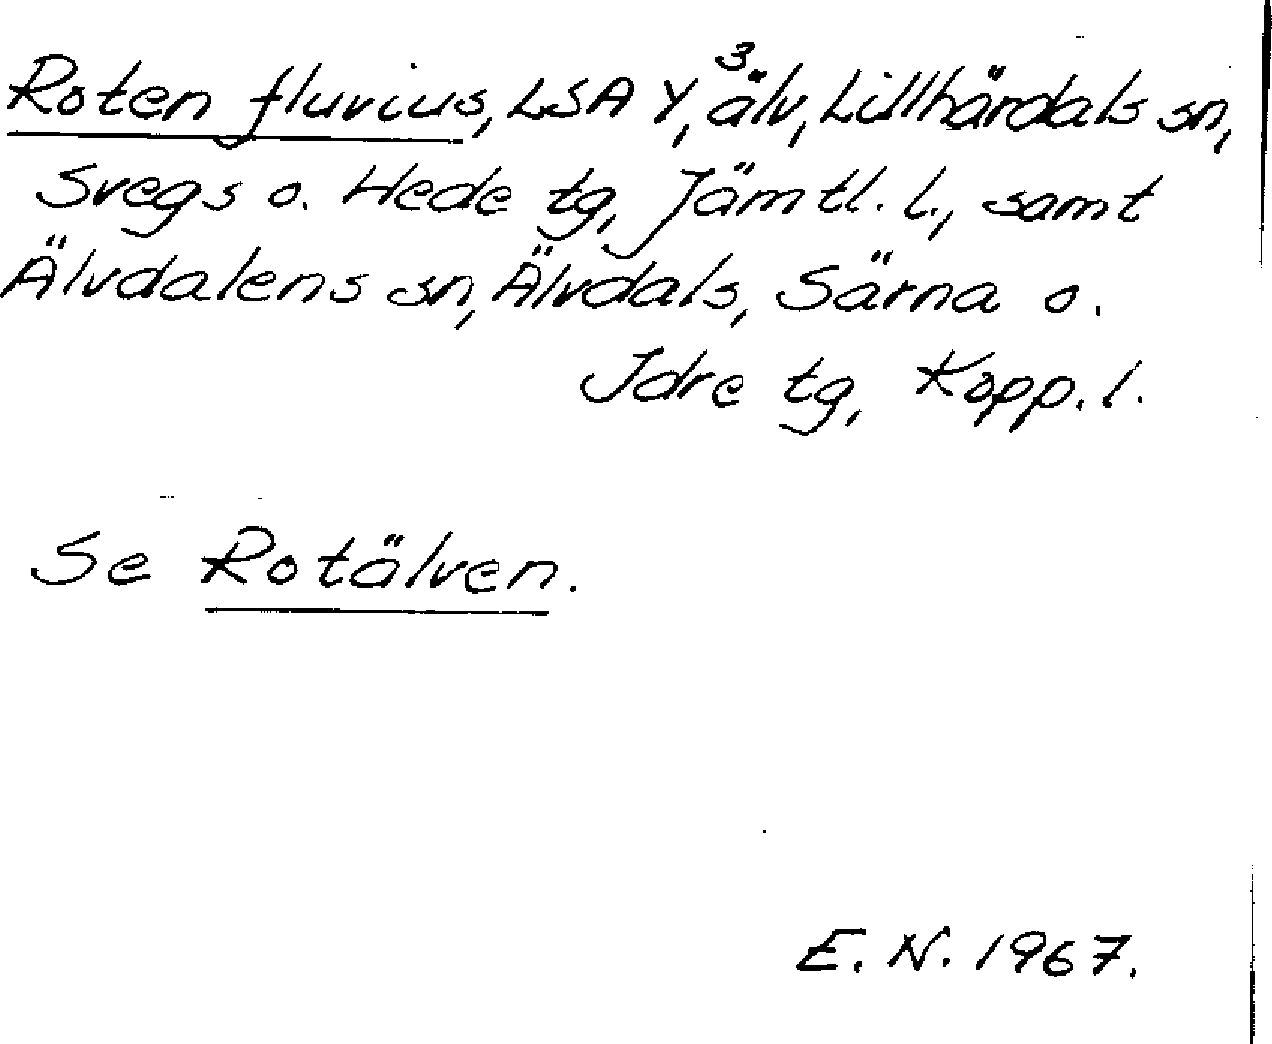 Roten fluvius, LSA Y³, älv, Lillhärdals sn,
Svegs o. Hede tg, Jämtl. l., samt
Älvdalens sn, Älvdals, Särna o.
Idre tg, Kopp. l.
Se Rotälven.
E. N. 1967.